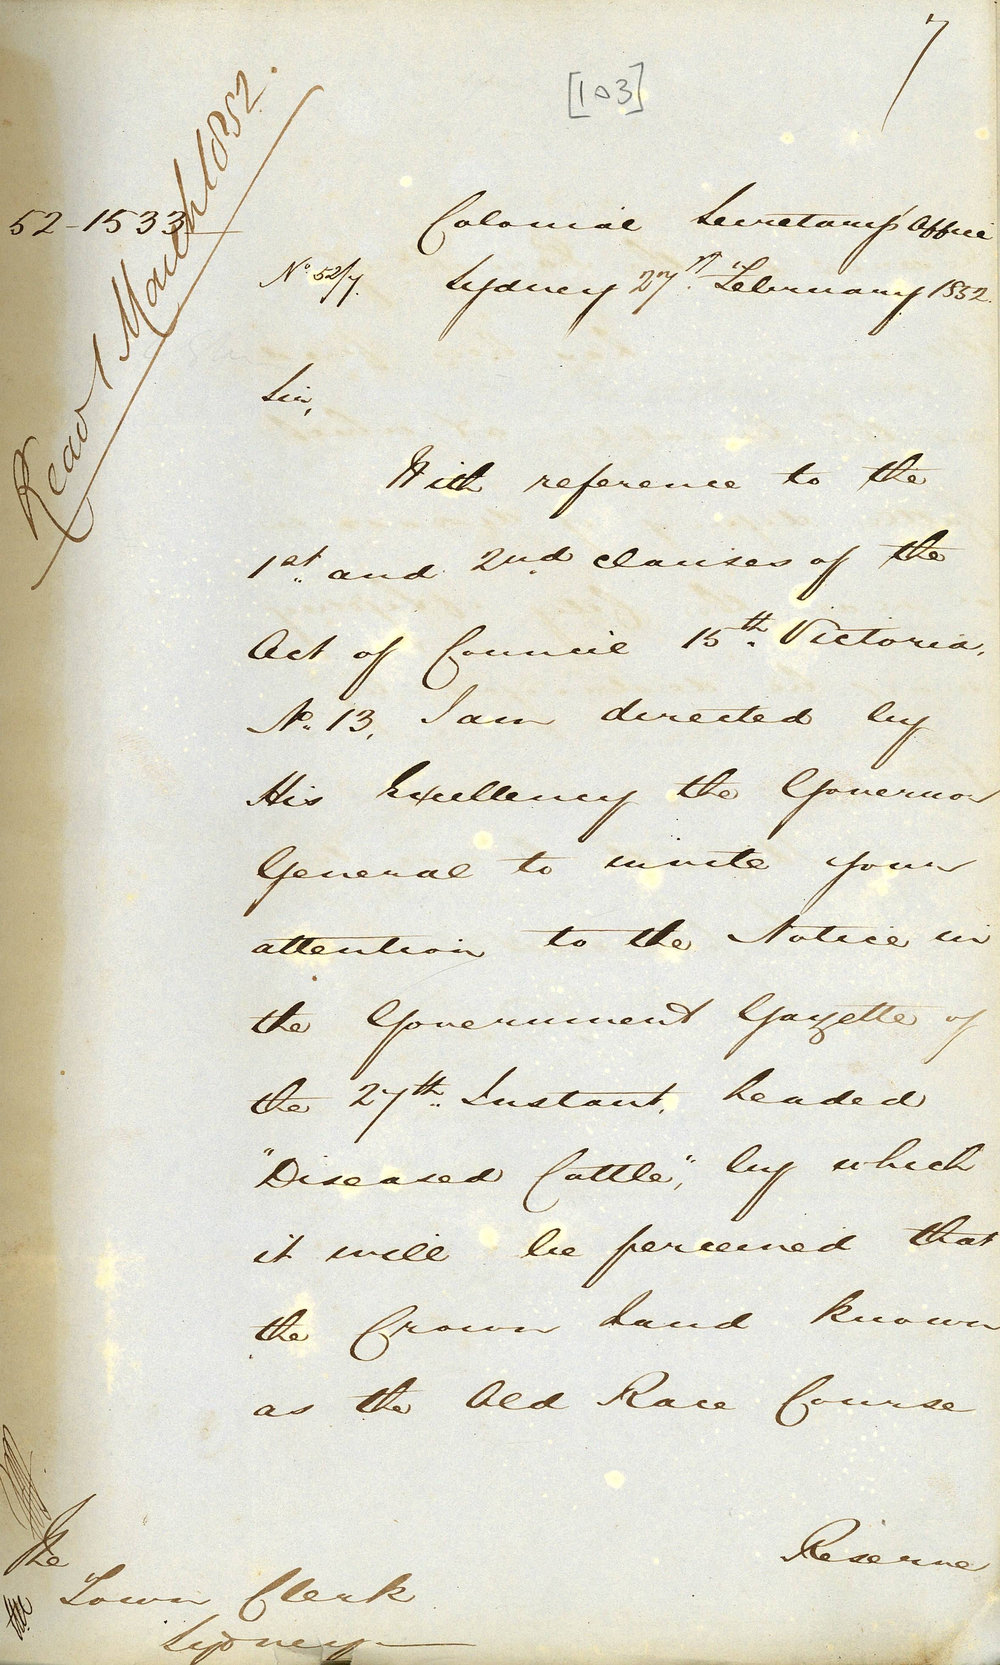 7
[103]
Read 1 March 1852.
52-1533
Colonial Secretary's Office
No. 52/7. Sydney 27th. February 1852.
Sir,
With reference to the
1st. and 2nd. clauses of the
Act of Council 15th. Victoria,
No. 13, I am directed by
His Excellency the Governor
General to invite your
attention to the Notice in
the Government Gazette of
the 27th. Instant, headed
"Diseased Cattle", by which
it will be perceived that
the Crown Land known
as the Old Race Course
Reserve
The
Town Clerk
Sydney